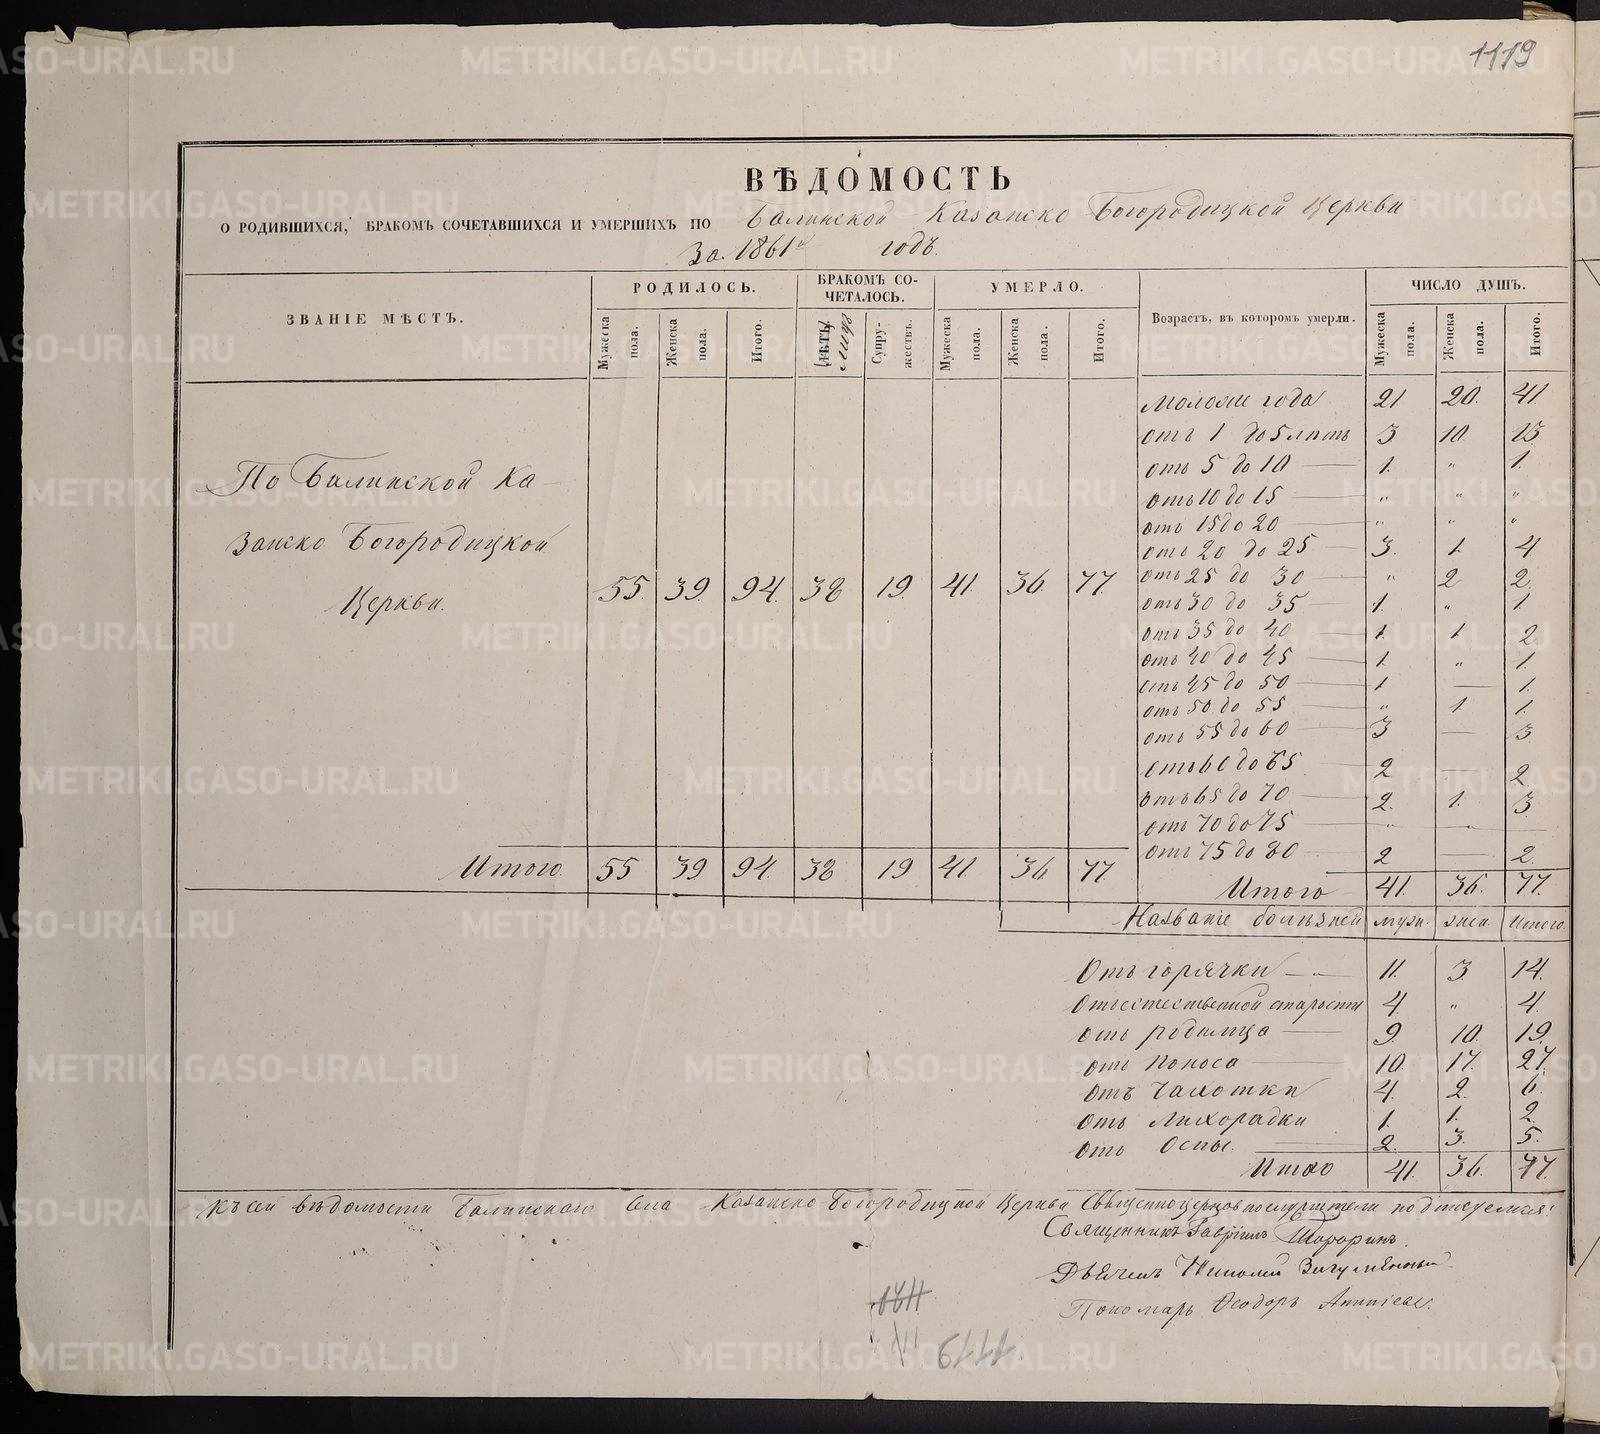 1119
ВѢДОМОСТЬ
О РОДИВШИХСЯ, БРАКОМЪ СОЧЕТАВШИХСЯ И УМЕРШИХЪ ПО Балинской Казанско Богородицкой Церкви
За 1861й годъ.
ЗВАНІЕ МѢСТЪ. РОДИЛОСЬ. БРАКОМЪ СОЧЕТАЛОСЬ. УМЕРЛО. Возрастъ, въ которомъ умерли. ЧИСЛО ДУШЪ.
Мужеска пола. Женска пола. Итого. лицъ Супружествъ. Мужеска пола. Женска пола. Итого. Мужеска пола. Женска пола. Итого.
По Балинской Казанско Богородицкой Церкви. 55. 39. 94. 38 19. 41. 36. 77.
Моложе года 21 20. 41.
отъ 1 до 5 лѣтъ 3 10. 13
отъ 5 до 10 — 1. „ 1.
отъ 10 до 15 — „ „ „
отъ 15 до 20 — „ „ „
отъ 20 до 25 — 3. 1. 4
отъ 25 до 30 — „ 2 2.
отъ 30 до 35 — 1. „ 1.
отъ 35 до 40 — 1. 1. 2.
отъ 40 до 45 — 1. „ 1.
отъ 45 до 50 — 1 — 1.
отъ 50 до 55 — „ 1. 1.
отъ 55 до 60 — 3 — 3.
отъ 60 до 65 — 2 — 2
отъ 65 до 70 — 2. 1. 3
отъ 70 до 75 — „ — —
отъ 75 до 80 — 2 — 2.
Итого. 55 39 94. 38 19 41. 36. 77.
Итого 41. 36. 77.
Названіе болѣзней муж. жен. Итого.
Отъ горячки — „ 11. 3. 14.
Отъ естественной старости 4. „ 4.
отъ родимца — 9. 10. 19.
отъ Поноса — 10. 17. 27.
отъ Чахотки 4. 2. 6.
отъ Лихорадки 1. 1. 2.
отъ Оспы. — 2. 3. 5.
Итого 41. 36. 77.
Къ сей вѣдомости Балинскаго Села Казанско Богородицкой Церкви Священноцерковнослужители подписуемся:
Священникъ Гавріилъ
Дьячекъ Николай
Пономарь Ѳеодоръ
1120
1119
METRIKI.GASO-URAL.RU